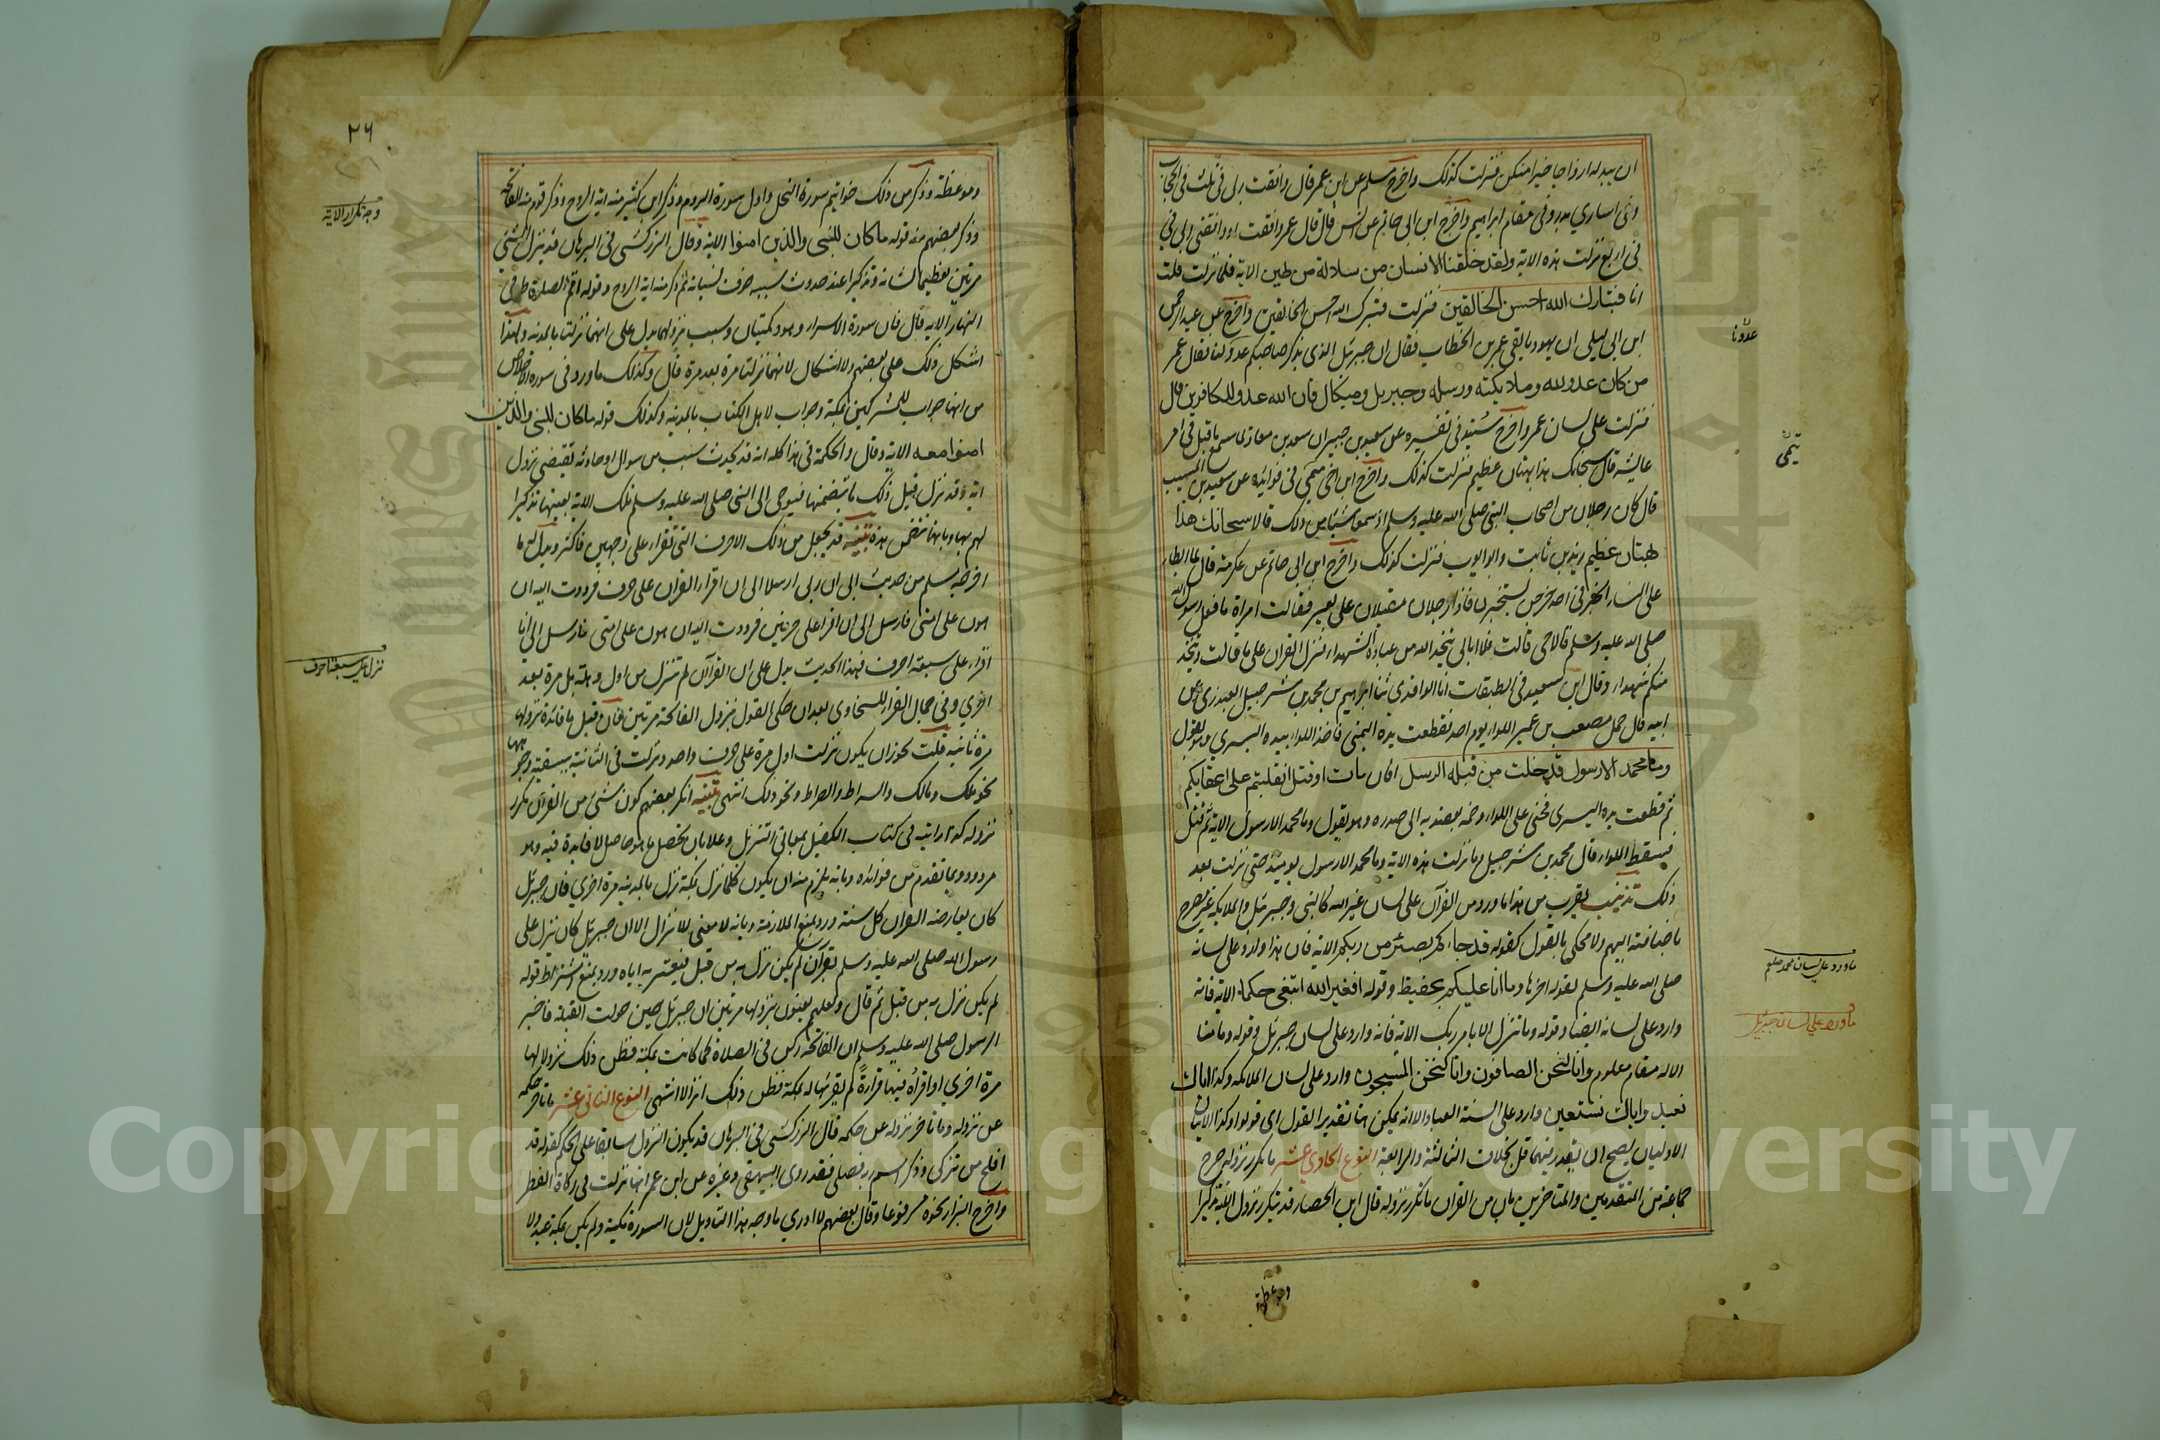 ان يبدله ازواجا خيرا منكن فنزلت كذلك واخرج مسلم عن ابن عمر قال وافقت ربي في ثلث في الحجاب
وفي اساري بدر وفي مقام ابراهيم واخرج ابن ابي حاتم عن انس قال قال عمر وافقت ربي او وافقني ربي في
في اربع نزلت هذه الاية ولقد خلقنا الانسان من سلالة من طين الاية فلما نزلت قلت
انا فتبارك الله احسن الخالقين فنزلت فتبرك الله احسن الخالقين واخرج عن عبد الرحمن
ابن ابي ليلى ان يهوديا لقي عمر بن الخطاب فقال ان جبرئل الذي يذكر صاحبكم عدو لنا فقال عمر
من كان عدو لله وملايكته ورسله وجبريل وميكال فان الله عدو للكافرين قال
فنزلت على لسان عمر واخرج سنيد في تفسيره عن سعيد بن جبير ان سعد بن معاذ لما سمع ما قيل في امر
عائشة قال سبحانك هذا بهتان عظيم فنزلت كذلك واخرج ابن اخي ميمي في فوائده عن سعيد بن المسيب
قال كان رجلان من اصحاب النبي صلى الله عليه وسلم اذ سمعا شيئا من ذلك قالا سبحانك هذا
بهتان عظيم زيد بن ثابت وابو ايوب فنزلت كذلك واخرج ابن ابي حاتم عن عكرمة قال لما ابطا
على النساء الخبر في احد خرجن يستخبرن فاذا رجلان مقبلان على بعير فقالت امراة ما فعل رسول الله
صلى الله عليه وسلم قالا حي قالت فلا ابالي يتخذ الله من عباده الشهداء فنزل القران على ما قالت ويتخذ
منكم شهداء وقال ابن سعد في الطبقات انا الواقدي ثنا ابراهيم بن محمد بن شرحبيل العبدري عن
ابيه قال حمل مصعب بن عمير اللواء يوم احد فقطعت يده اليمني فاخذ اللواء بيده اليسري وهو يقول
وما محمد الا رسول قد خلت من قبله الرسل افان مات او قتل انقلبتم على اعقابكم
ثم قطعت يده اليسرى فحنى على اللواء وضمه بعضديه الى صدره وهو يقول وما محمد الا رسول الاية ثم قتل
فسقط اللواء قال محمد بن شرحبيل وما نزلت هذه الاية وما محمد الا رسول يومئذ حتى نزلت بعد
ذلك تذنيب يقرب من هذا ما ورد من القرآن على لسان غير الله كالنبي وجبرئل والملايكة غير مصرح
باضافته اليهم ولا محكي بالقول كقوله قد جاءكم بصئر من ربكم الاية فان هذا وارد على لسانه
صلى الله عليه وسلم لقوله اخرها وما انا عليكم بحفيظ وقوله افغير الله ابتغي حكما الاية فانه
وارد على لسانه ايضا وقوله وما نتنزل الا بامر ربك الاية فانه وارد على لسان جبرئل وقوله وما منا
الا له مقام معلوم وانا لنحن الصافون وانا لنحن المسبحون وارد على لسان الملايكه وكذا اياك
نعبد واياك نستعين وارد على السنة العباد الا انه يمكن هنا تقدير القول اي قولوا وكذا الايتان
الاوليان يصح ان يقدر فيهما قل بخلاف الثالثة والرابعة النوع الحادي عشر ما تكرر نزوله صرح
جماعة من المتقدمين والمتاخرين بان من القران ما تكرر نزوله قال ابن الحصار قد يتكرر نزول الاية تذكيرا
وموعظة
عدونا
ميمي
ما ورد على لسان محمد صلعم
ما ورد على لسان جبرئيل
٢٦
وموعظة وذكر من ذلك خواتيم سورة النحل واول سورة الروم وذكر ابن كثير منه اية الروح وذكر قوم منه الفاتحة
وذكر بعضهم منه قوله ما كان للنبي والذين امنوا الاية وقال الزركشي في البرهان قد ينزل الشئ
مرتين تعظيما لشانه وتذكيرا عند حدوث سببه خوف نسيانه ثم ذكر منه اية الروح وقوله اقم الصلوة طرفي
النهار الاية قال فان سورة الاسراء وهود مكيتان وسبب نزولهما يدل على انهما نزلتا بالمدينة ولهذا
اشكل ذلك على بعضهم ولا اشكال لانهما نزلتا مرة بعد مرة قال وكذلك ما ورد في سورة الاخلاص
من انها جواب للمشركين بمكة وجواب لاهل الكتاب بالمدينة وكذلك قوله ما كان للنبي والذين
امنوا معه الاية وقال والحكمة في هذا كله انه قد يحدث سبب من سوال او حادثة تقتضي نزول
اية وقد نزل قبل ذلك ما يتضمنها فيوحى الى النبي صلى الله عليه وسلم تلك الاية بعينها تذكيرا
لهم بها وبانها تتضمن هذه تنبيه قد يجعل من ذلك الاحرف التي تقراء على وجهين فاكثر ويدل له ما
اخرجه مسلم من حديث ابي ان ربي ارسل الى ان اقراء القران على حرف فرددت اليه ان
هون على امتي فارسل الى ان اقرا على حرفين فرددت اليه ان هون على امتي فارسل الى ان
اقراء على سبعة احرف فهذا الحديث يدل على ان القرآن لم تنزل من اول وهلة بل مرة بعد
اخري وفي جمال القراء للسخاوي بعد ان حكى القول بنزول الفاتحة مرتين فان قيل ما فائدة نزولها
مرة ثانية قلت يجوز ان يكون نزلت اول مرة على حرف واحد ونزلت في الثانية ببقية وجوهها
نحو ملك ومالك والسراط والصراط ونحو ذلك انتهى تنبيه انكر بعضهم كون شئ من القرآن تكرر
نزوله كذا رايته في كتاب الكفيل بمعاني التنزيل وعلله بان تحصيل ما هو حاصل لا فايدة فيه وهو
مردود بما تقدم من فوائده وبانه يلزم منه ان يكون كلما نزل بمكة نزل بالمدينة مرة اخري فان جبرئل
كان يعارضه القران كل سنة ورد بمنع الملازمة وبانه لا معنى للانزال الا ان جبرئل كان ينزل على
رسول الله صلى الله عليه وسلم بقرآن لم يكن نزل به من قبل فيقريه اياه ورد بمنع اشتراط قوله
لم يكن نزل به من قبل ثم قال ولعلهم يعنون بنزولها مرتين ان جبرئل حين حولت القبلة فاخبر
الرسول صلى الله عليه وسلم ان الفاتحة ركن في الصلاة كما كانت بمكة فظن ذلك نزولا لها
مرة اخري او اقرأه فيها قراءة لم يقرئها له بمكة فظن ذلك انزالا انتهى النوع الثاني عشر ما تاخر حكمه
عن نزوله وما تاخر نزوله عن حكمه قال الزركشي في البرهان قد يكون النزول سابقا على الحكم كقوله قد
افلح من تزكى وذكر اسم ربه فصلى فقد روى البيهقي وغيره عن ابن عمر انها نزلت في زكاة الفطر
واخرج البزار نحوه مرفوعا وقال بعضهم لا ادري ما وجه هذا التاويل لان السورة مكية ولم يكن بمكة عيد ولا
وجه تكرار الاية
نزل على سبعة احرف
Copyright King Saud University